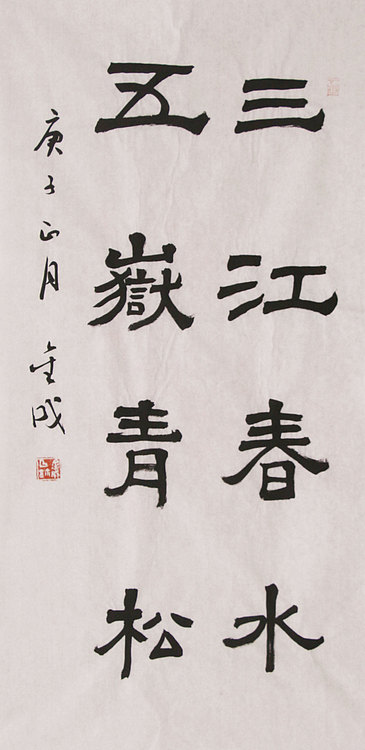 三江春水
五嶽青松
庚子正月 金成